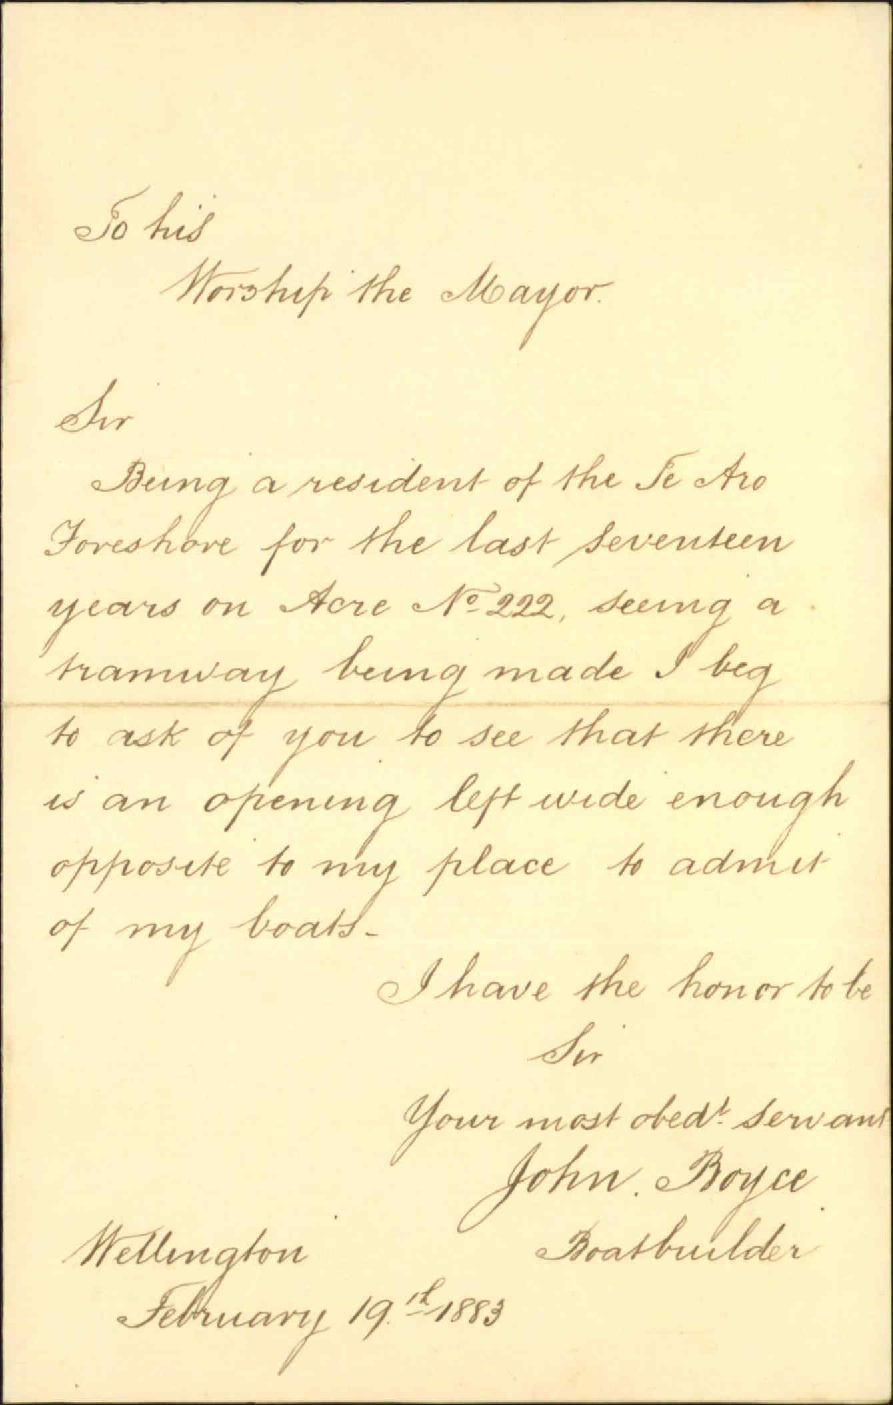 To his
Worship the Mayor.
Sir
Being a resident of the Te Aro
Foreshore for the last seventeen
years on Acre No 222, seeing a
tramway being made I beg
to ask of you to see that there
is an opening left wide enough
opposite to my place to admit
of my boats-
I have the honor to be
Sir
Your most obedt. servant
John. Boyce
Boatbuilder
Wellington
February 19.th 1883